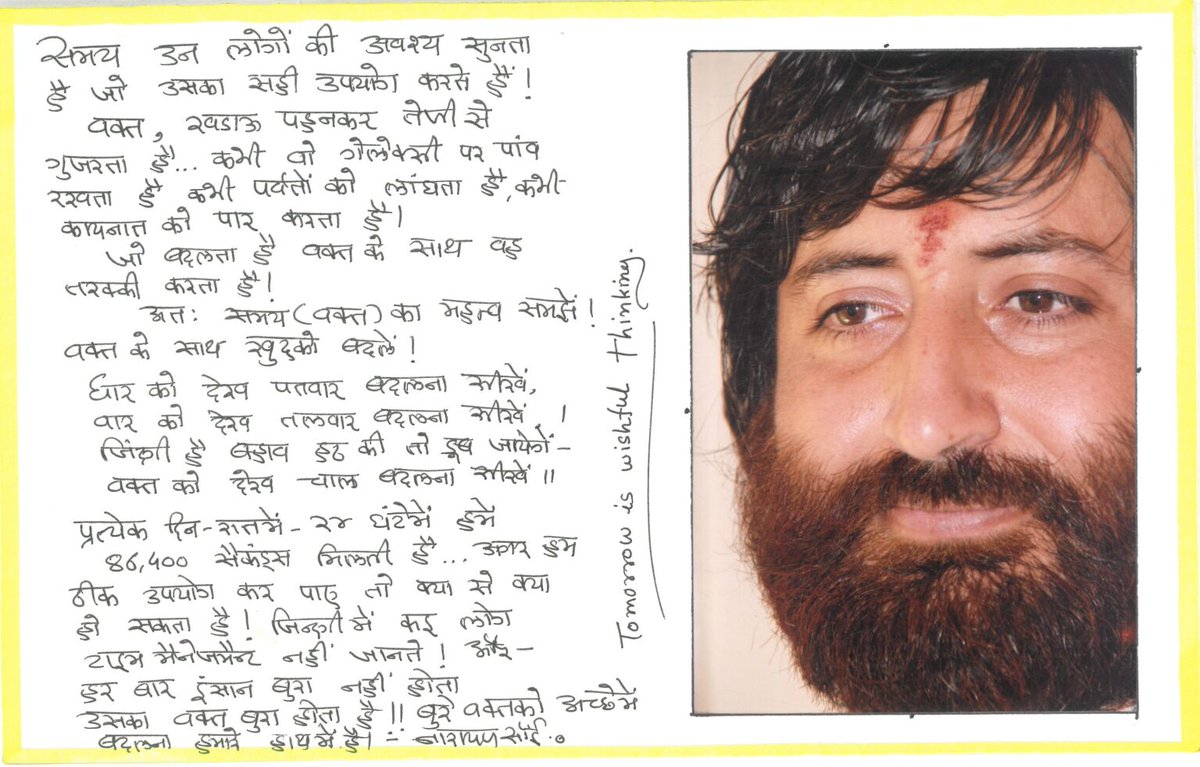 समय उन लोगों की अवश्य सुनता
है जो उसका सही उपयोग करते हैं!
वक्त, खडाऊ पहनकर तेजी से
गुजरता है... कभी वो गेलेक्सी पर पांव
रखता है कभी पर्वतों को लांघता है, कभी-
कायनात को पार करता है।
जो बदलता है वक्त के साथ वह
तरक्की करता है!
अतः समय (वक्त) का महत्व समझें!
वक्त के साथ खुदको बदलें!
धार को देख पतवार बदलना सीखें,
वार को देख तलवार बदलना सीखें,।
जिंदगी है बहाव हठ की तो डूब जायेंगे-
वक्त को देख चाल बदलना सीखें॥
प्रत्येक दिन-रातमें- २४ घंटेमें हमें
86,400 सैकंड्स मिलती है... अगर हम
ठीक उपयोग कर पाए तो क्या से क्या
हो सकता है! जिन्दगी में कई लोग
टाइम मैनेजमैन्ट नहीं जानते! और-
हर बार इंसान बुरा नहीं होता
उसका वक्त बुरा होता है!! बुरे वक्तको अच्छेमें
बदलना हमारे हाथ में है। - नारायण साँई.
Tomorrow is wishful Thinking.